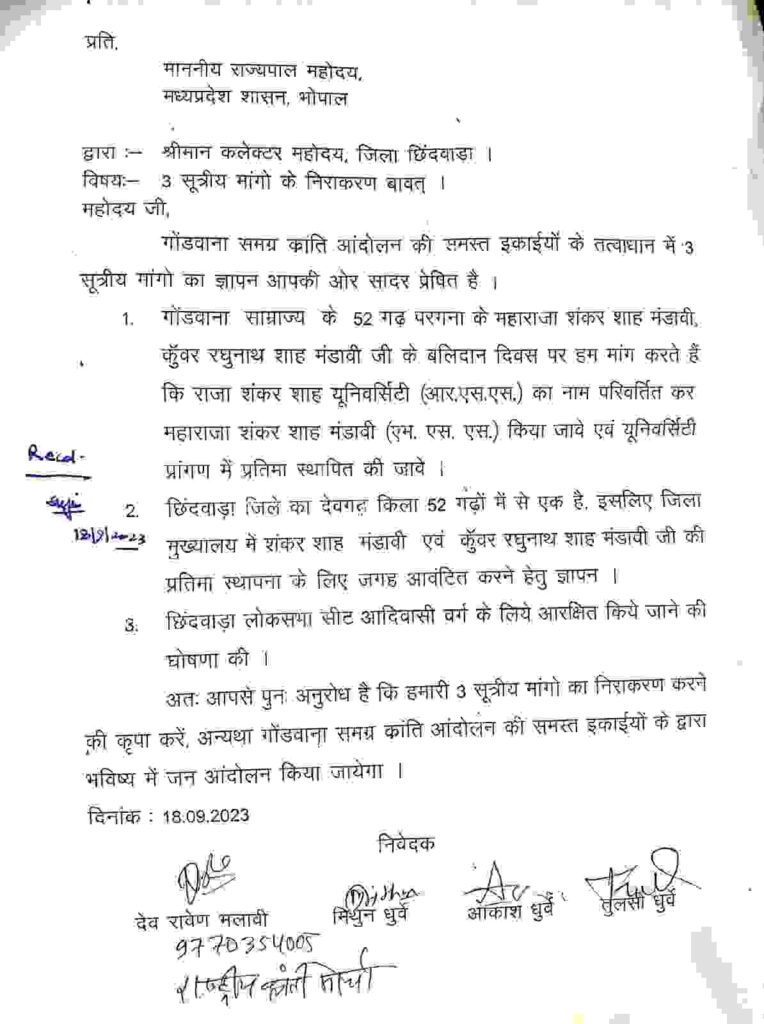 प्रति,
माननीय राज्यपाल महोदय,
मध्यप्रदेश शासन, भोपाल
द्वारा :– श्रीमान कलेक्टर महोदय, जिला छिंदवाड़ा ।
विषयः– 3 सूत्रीय मांगो के निराकरण बावत् ।
महोदय जी,
गोंडवाना समग्र क्रांति आंदोलन की समस्त इकाईयों के तत्वाधान में 3
सूत्रीय मांगो का ज्ञापन आपकी ओर सादर प्रेषित है ।
1. गोंडवाना साम्राज्य के 52 गढ़ परगना के महाराजा शंकर शाह मंडावी,
कुँवर रघुनाथ शाह मंडावी जी के बलिदान दिवस पर हम मांग करते हैं
कि राजा शंकर शाह यूनिवर्सिटी (आर.एस.एस.) का नाम परिवर्तित कर
महाराजा शंकर शाह मंडावी (एम. एस. एस.) किया जावे एवं यूनिवर्सिटी
प्रांगण में प्रतिमा स्थापित की जावे ।
Recd-
18/9/2023
2. छिंदवाड़ा जिले का देवगढ़ किला 52 गढ़ों में से एक है, इसलिए जिला
मुख्यालय में शंकर शाह मंडावी एवं कुँवर रघुनाथ शाह मंडावी जी की
प्रतिमा स्थापना के लिए जगह आवंटित करने हेतु ज्ञापन ।
3. छिंदवाड़ा लोकसभा सीट आदिवासी वर्ग के लिये आरक्षित किये जाने की
घोषणा की ।
अतः आपसे पुनः अनुरोध है कि हमारी 3 सूत्रीय मांगो का निराकरण करने
की कृपा करें, अन्यथा गोंडवाना समग्र क्रांति आंदोलन की समस्त इकाईयों के द्वारा
भविष्य में जन आंदोलन किया जायेगा ।
दिनांक : 18.09.2023
निवेदक
देव रावेण मलावी मिथुन धुर्वे आकाश धुर्वे तुलसी धुर्वे
9770354005
राष्ट्रीय क्रांती मोर्चा